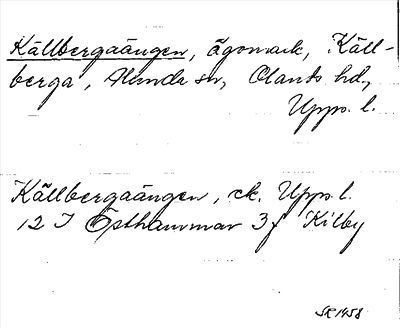 Källbergaängen, ägomark, Käll-
berga, Alunda sn, Olands hd,
Upps. l.
Källbergaängen, ek. Upps. l.
12 I Östhammar 3 f Kilby
SR 1958